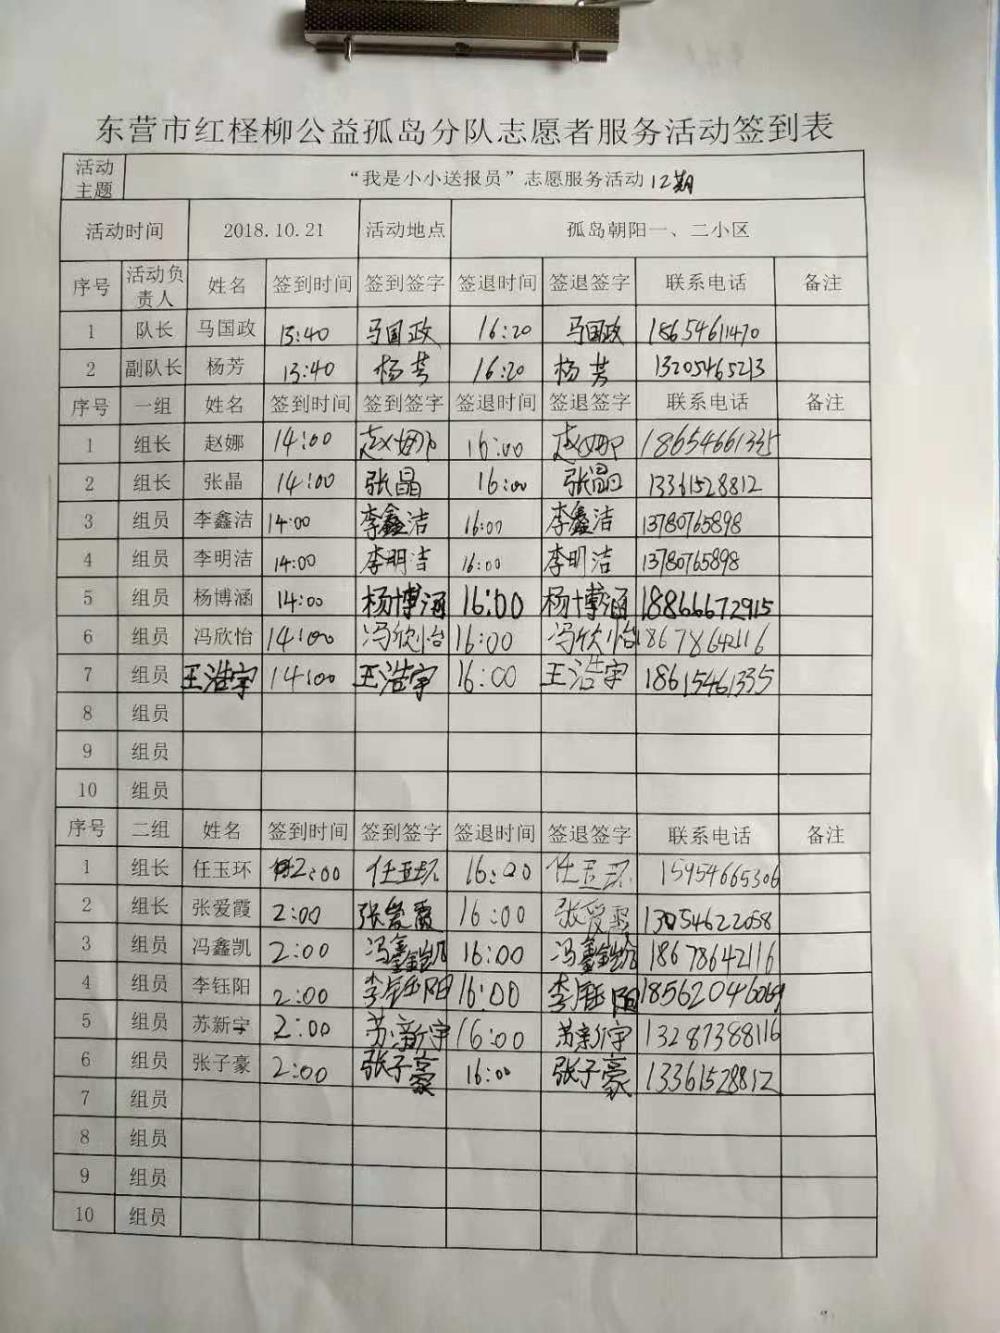 东营市红柽柳公益孤岛分队志愿者服务活动签到表
活动主题 “我是小小送报员”志愿服务活动 12期
活动时间 2018.10.21 活动地点 孤岛朝阳一、二小区
序号 活动负责人 姓名 签到时间 签到签字 签退时间 签退签字 联系电话 备注
1 队长 马国政 13:40 马国政 16:20 马国政 18654611470
2 副队长 杨芳 13:40 杨芳 16:20 杨芳 13205465213
序号 一组 姓名 签到时间 签到签字 签退时间 签退签字 联系电话 备注
1 组长 赵娜 14:00 赵娜 16:00 赵娜 18654661335
2 组长 张晶 14:00 张晶 16:00 张晶 13361528812
3 组员 李鑫洁 14:00 李鑫洁 16:00 李鑫洁 13780765898
4 组员 李明洁 14:00 李明洁 16:00 李明洁 13780765898
5 组员 杨博涵 14:00 杨博涵 16:00 杨博涵 18866672915
6 组员 冯欣怡 14:00 冯欣怡 16:00 冯欣怡 18678642116
7 组员 王浩宇 14:00 王浩宇 16:00 王浩宇 18615461335
8 组员
9 组员
10 组员
序号 二组 姓名 签到时间 签到签字 签退时间 签退签字 联系电话 备注
1 组长 任玉环 2:00 任玉环 16:00 任玉环 15954665306
2 组长 张爱霞 2:00 张爱霞 16:00 张爱霞 13054622058
3 组员 冯鑫凯 2:00 冯鑫凯 16:00 冯鑫凯 18678642116
4 组员 李钰阳 2:00 李钰阳 16:00 李钰阳 18562046069
5 组员 苏新宇 2:00 苏新宇 16:00 苏新宇 13287388116
6 组员 张子豪 2:00 张子豪 16:00 张子豪 13361528812
7 组员
8 组员
9 组员
10 组员